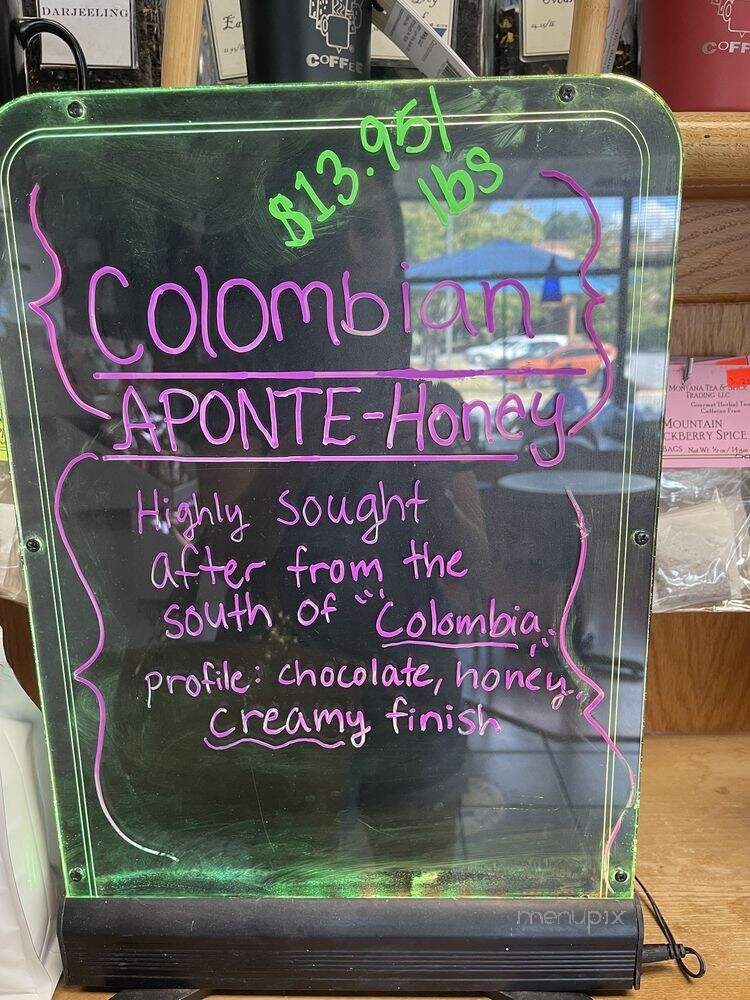 DARJEELING
COFFEE
COFF
$13.95/
lbs
Colombian
APONTE-Honey
Highly sought
after from the
south of "Colombia."
profile: chocolate, honey,
creamy finish
MONTANA TEA & SPICE
TRADING LLC
Gourmet Herbal Tea
Caffeine Free
MOUNTAIN
CKBERRY SPICE
BAGS Net Wt. ½ oz / 14 gm
menupix